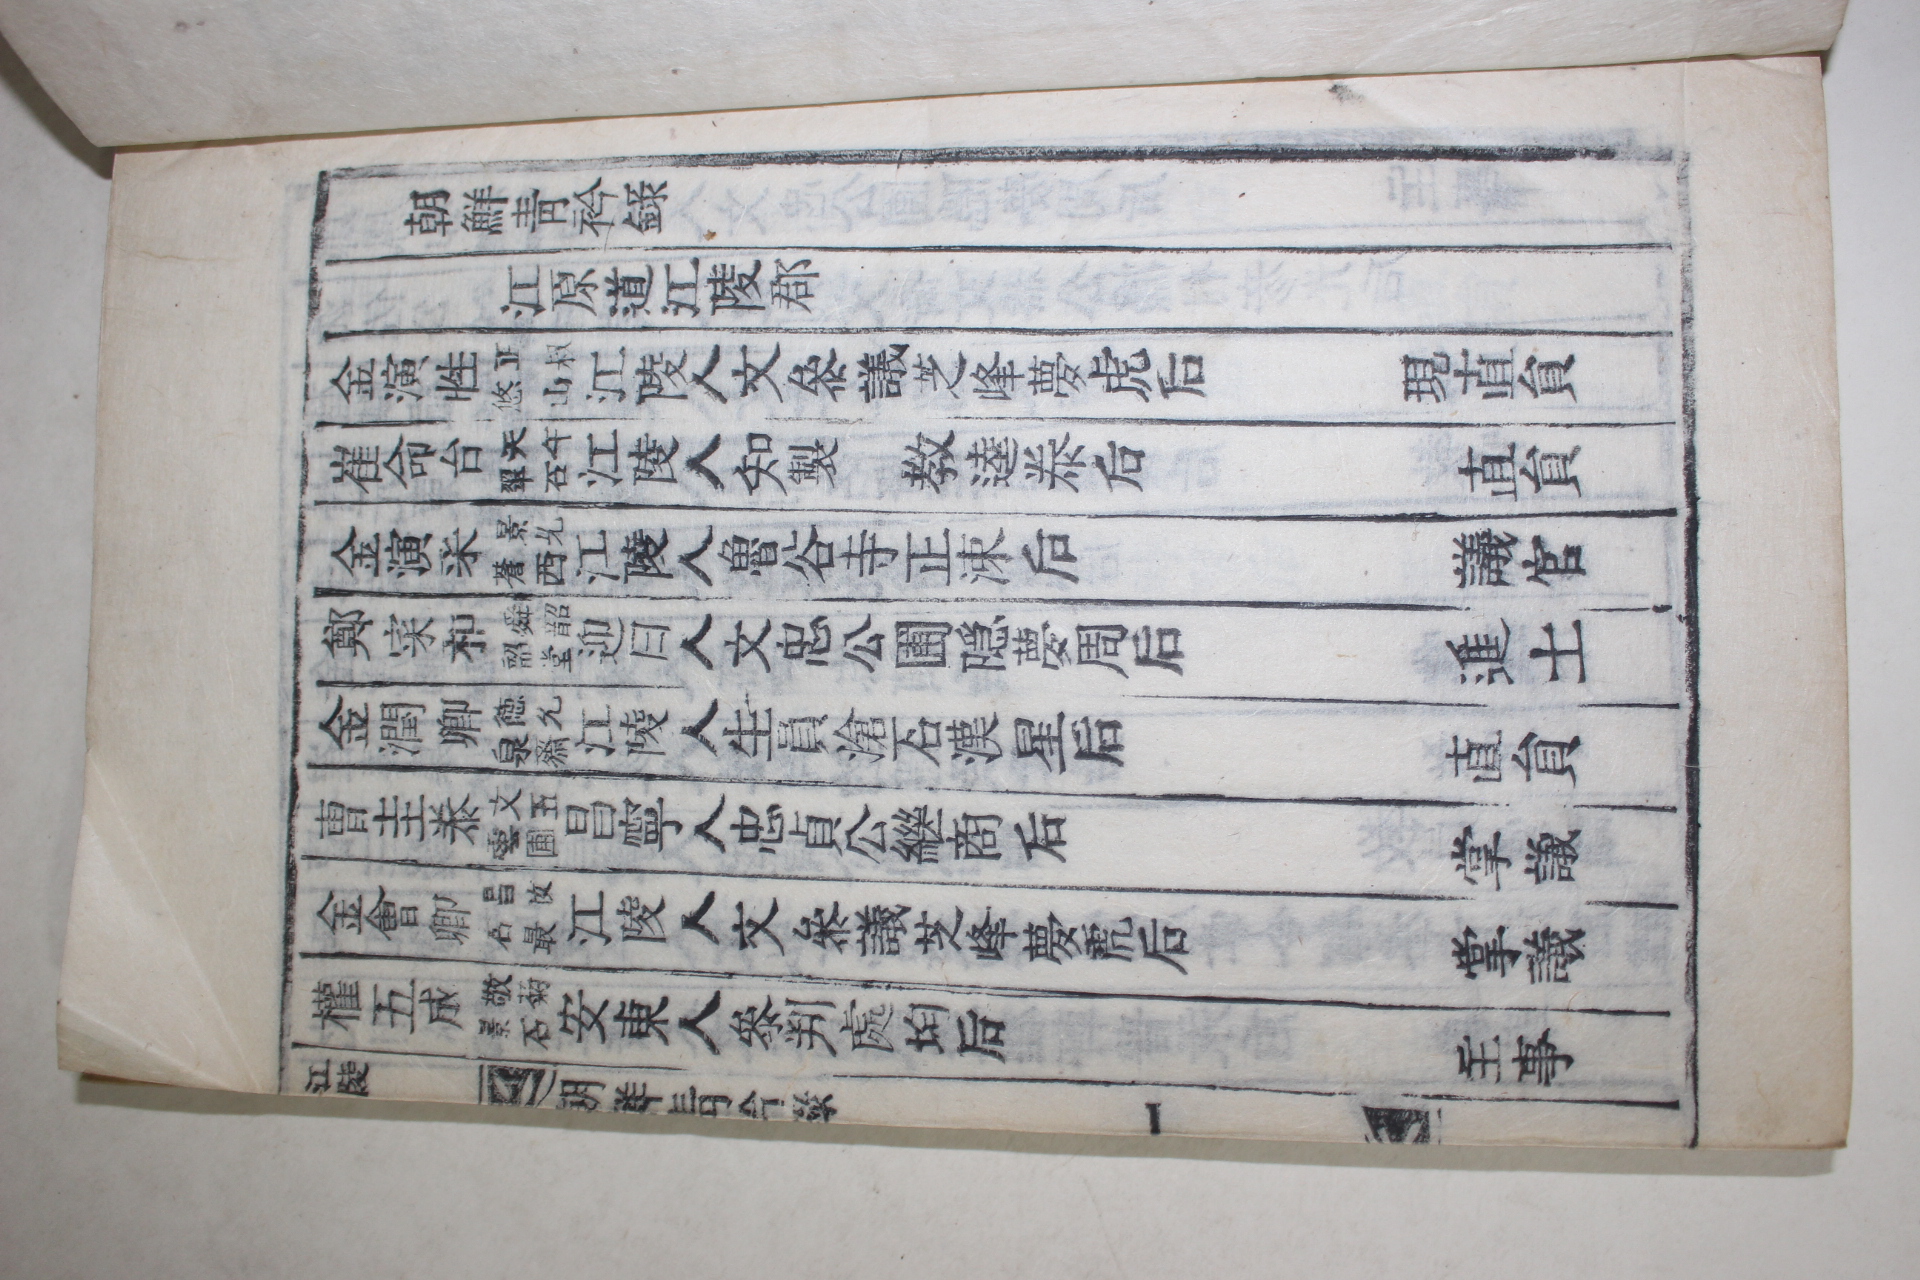 朝鮮青衿錄
江原道江陵郡
金演性 正叔 悠山 江陵人文參議芝峰夢虎后 現直員
崔命台 天午 翠石 江陵人知製 教逵泰后 直員
金演采 景允 蒼西 江陵人魯谷寺正洓后 議官
鄭寀和 舜韶 韶堂 迎日人文忠公圃隱夢周后 進士
金潤卿 德允 泉齋 江陵人生員滄石漢星后 直員
曺圭泰 文五 雲圃 昌寧人忠貞公繼商后 掌議
金會卿 昌汝 石最 江陵人文參議芝峰夢虎后 掌議
權五成 敬菊 景石 安東人參判處均后 主事
江陵
朝鮮青衿錄
一